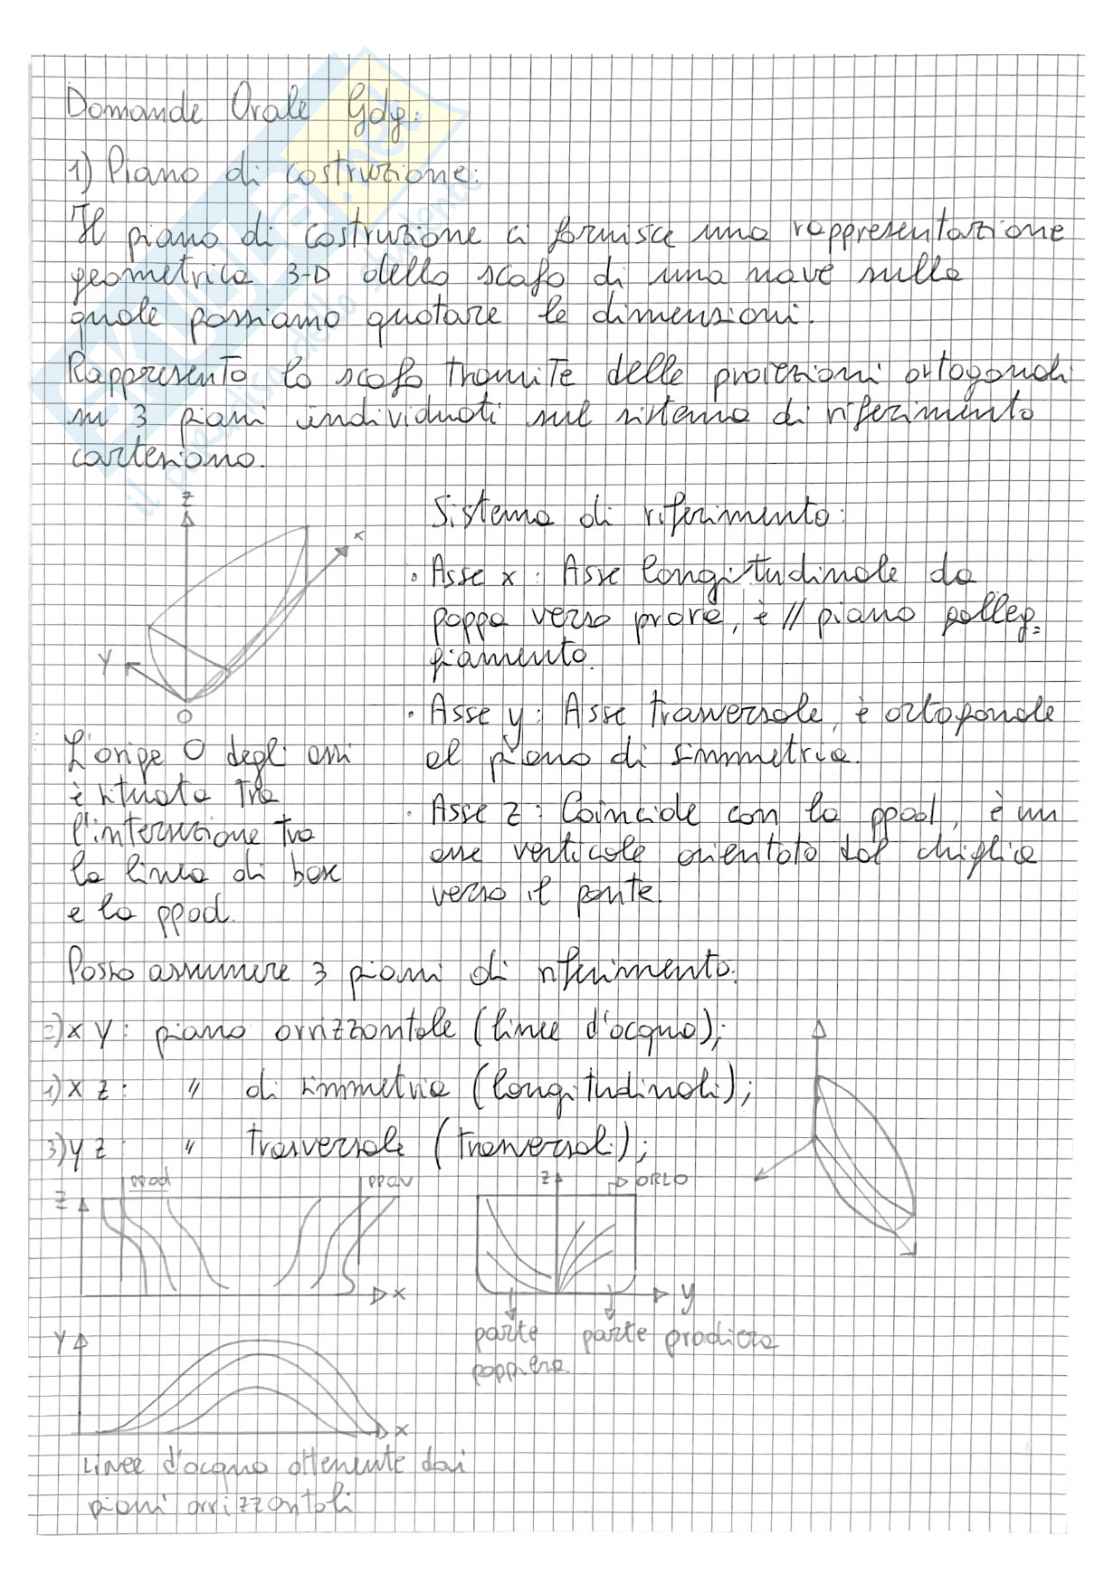 Domande Orale Gdg:
1) Piano di costruzione:
Il piano di costruzione ci fornisce una rappresentazione
geometrica 3-D dello scafo di una nave sulla
quale possiamo quotare le dimensioni.
Rappresento lo scafo tramite delle proiezioni ortogonali
su 3 piani individuati sul sistema di riferimento
cartesiano.
Z
x
Y
O
Sistema di riferimento:
• Asse x: Asse longitudinale da
poppa verso prora, è // piano galleg=
giamento.
• Asse y: Asse trasversale, è ortogonale
al piano di simmetria.
• Asse z: Coincide con la ppad, è un
asse verticale orientato dal chiglia
verso il ponte.
L'orige O degli assi
è situata tra
l'intersezione tra
la linea di base
e la ppad.
Posso assumere 3 piani di riferimento:
2) x y: piano orrizzontale (linee d'acqua);
1) x z: " di simmetria (longitudinali);
3) y z: " trasversale (trasversali);
Z ppad ppav
x
z ORLO
y
parte poppiera
parte prodiera
Y
x
Linee d'acqua ottenute dai
piani orrizzontali